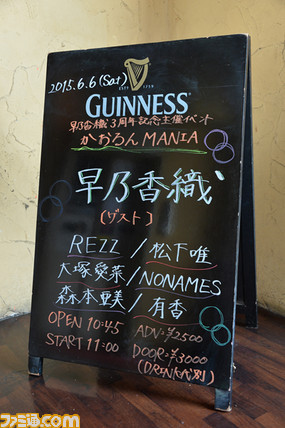 2015.6.6 (Sat)
ESTD 1759
GUINNESS
早乃香織3周年記念主催イベント
かおろんMANIA
早乃香織
(ゲスト)
REZZ / 松下唯
大塚愛菜 / NONAMES
森本亜美 / 有香
OPEN 10:45 ADV:¥2500
START 11:00 DOOR:¥3000
(DRINK代別)
ファミ通.com